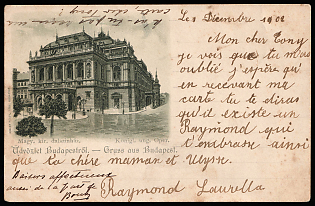 Le 1 Décembre 1902
Mon cher Tony
je vois que tu m'as
oublié j'espère qu'
en recevant ma
carte tu te diras
qu'il existe un
Raymond qui
t'embrasse ainsi
que ta chère maman et Ulysse.
Raymond Laurella
Magy. kir. dalszinház.
Königl. ung. Oper.
Üdvözlet Budapestről. — Gruss aus Budapest.
Baisers affectueux
aussi de la part de